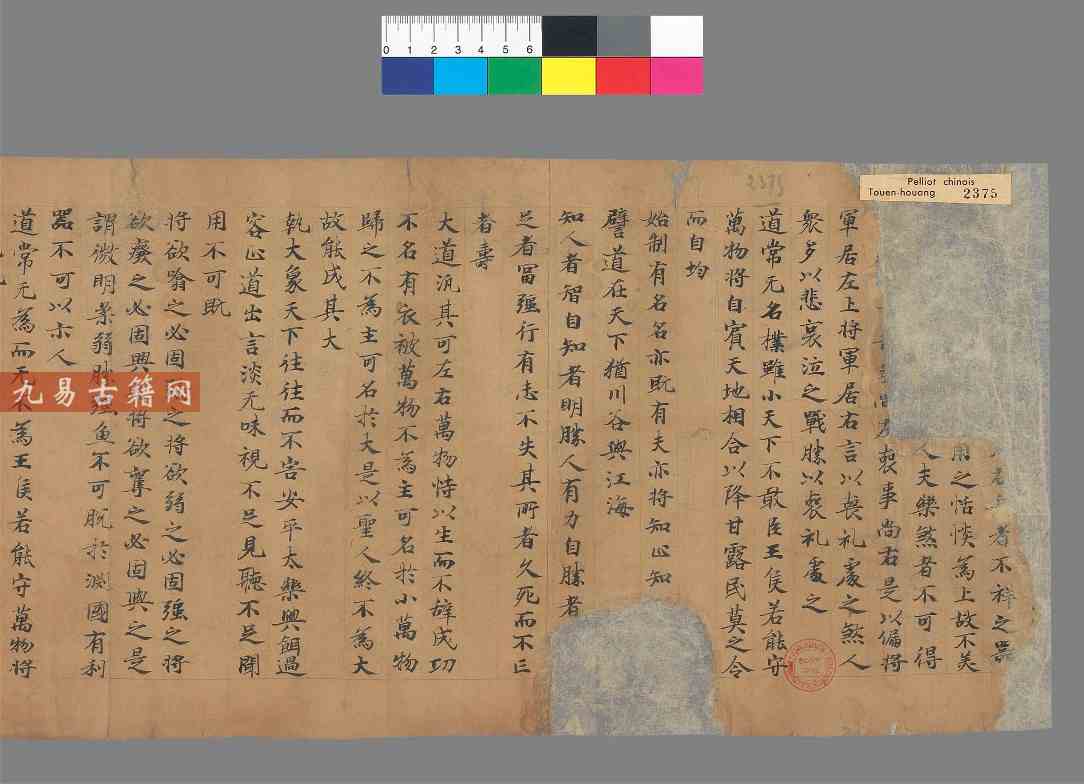 0 1 2 3 4 5 6
2375
Pelliot chinois
Touen-houang 2375
者不祥之器
用之恬惔為上故不美
夫樂煞者不可得
喪事尚右是以偏將
軍居左上將軍居右言以喪礼處之煞人
衆多以悲哀泣之戰勝以喪礼處之
道常无名樸雖小天下不敢臣王侯若能守
萬物將自賓天地相合以降甘露民莫之令
而自均
始制有名名亦既有夫亦將知止知
譬道在天下猶川谷與江海
知人者智自知者明勝人有力自勝者
足者富強行有志不失其所者久死而不亡
者壽
大道汎其可左右萬物恃以生而不辞成功
不名有衣被萬物不為主可名於小萬物
歸之不為主可名於大是以聖人終不為大
故能成其大
執大象天下往往而不害安平太樂與餌過
客止道出言淡无味視不足見聽不足聞
用不可既
將欲噏之必固之將欲弱之必固強之將
欲廢之必固興將欲奪之必固與之是
謂微明柔弱勝強魚不可脱於渊國有利
器不可以示人
道常无為而无不為王侯若能守萬物將
九易古籍网